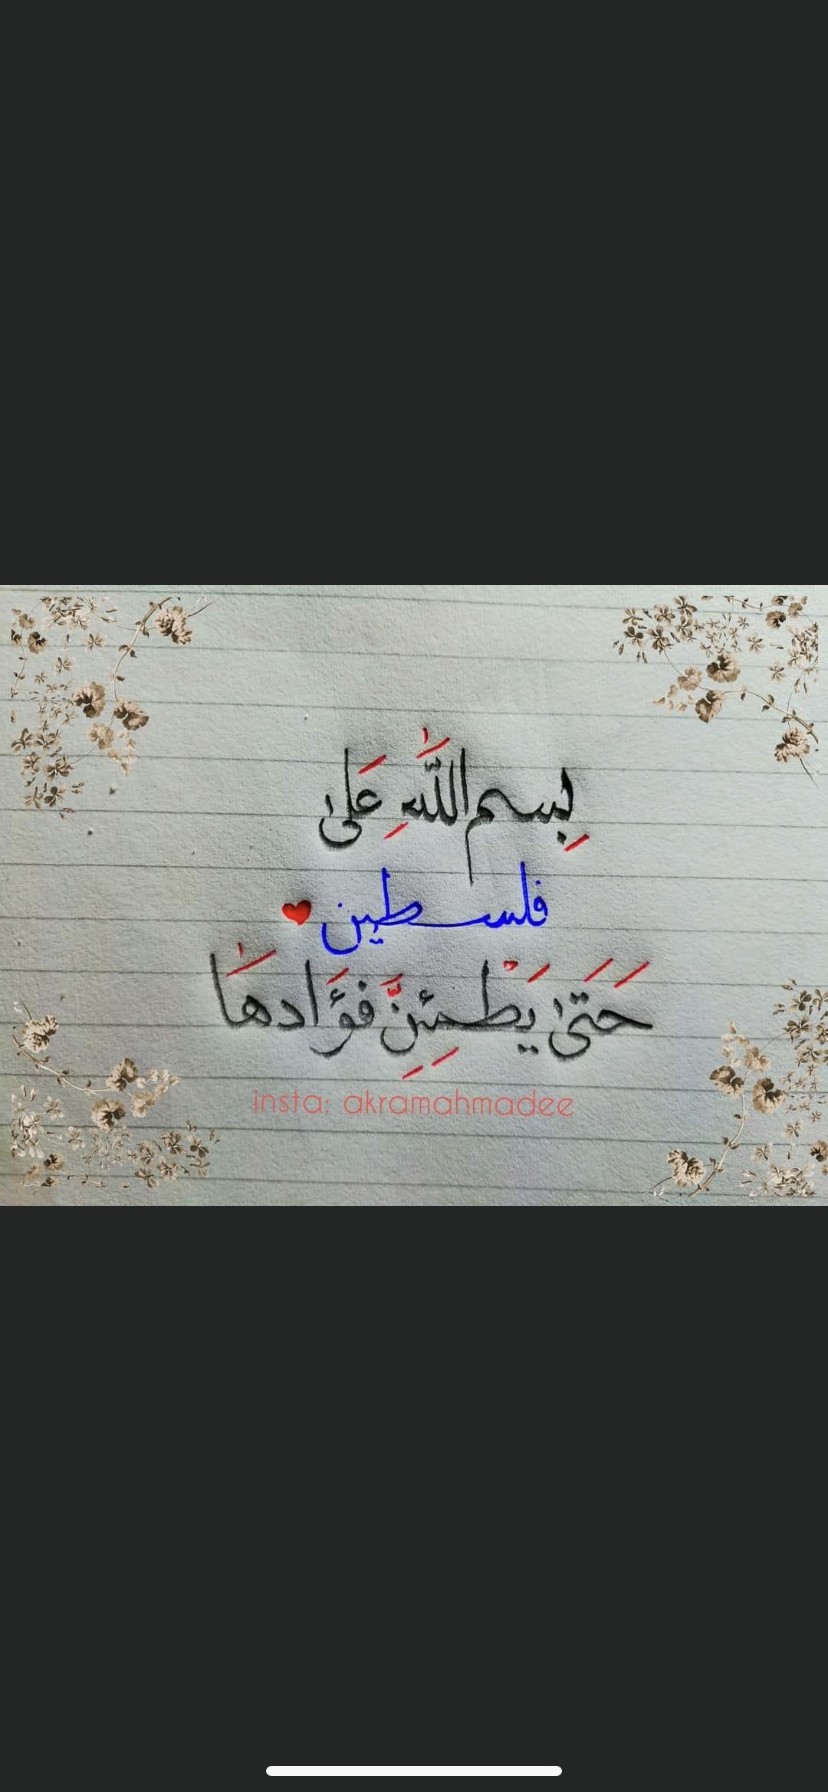 بِسمِ اللَّهِ عَلىٰ
فلسطين
حَتَىٰ يَطْمَئِنَّ فؤَادهَا
insta: akramahmadee